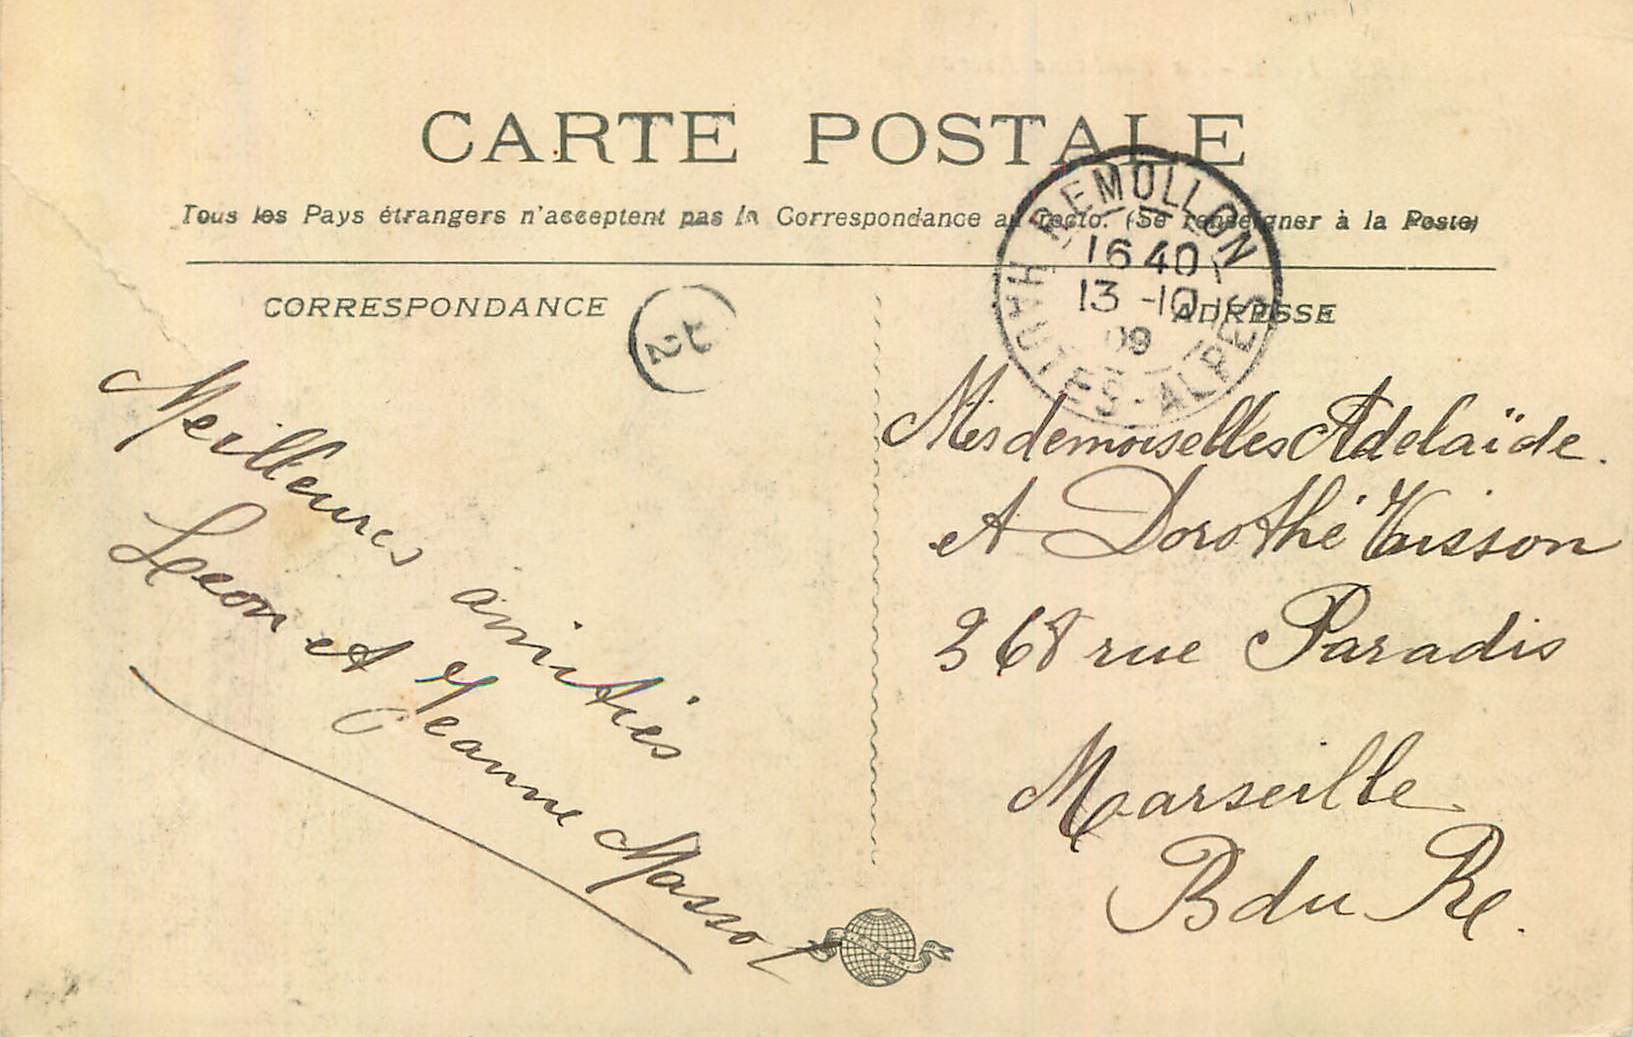 CARTE POSTALE
Tous les Pays étrangers n'acceptent pas la Correspondance au recto. (Se renseigner à la Poste)
REMOLLON
16 40
13 -10
09
HAUTES-ALPES
CORRESPONDANCE
2
ADRESSE
Meilleures amitiés
Leon et Jeanne Massot
Mesdemoiselles Adelaïde
et Dorothé Vaisson
368 rue Paradis
Marseille
B du R